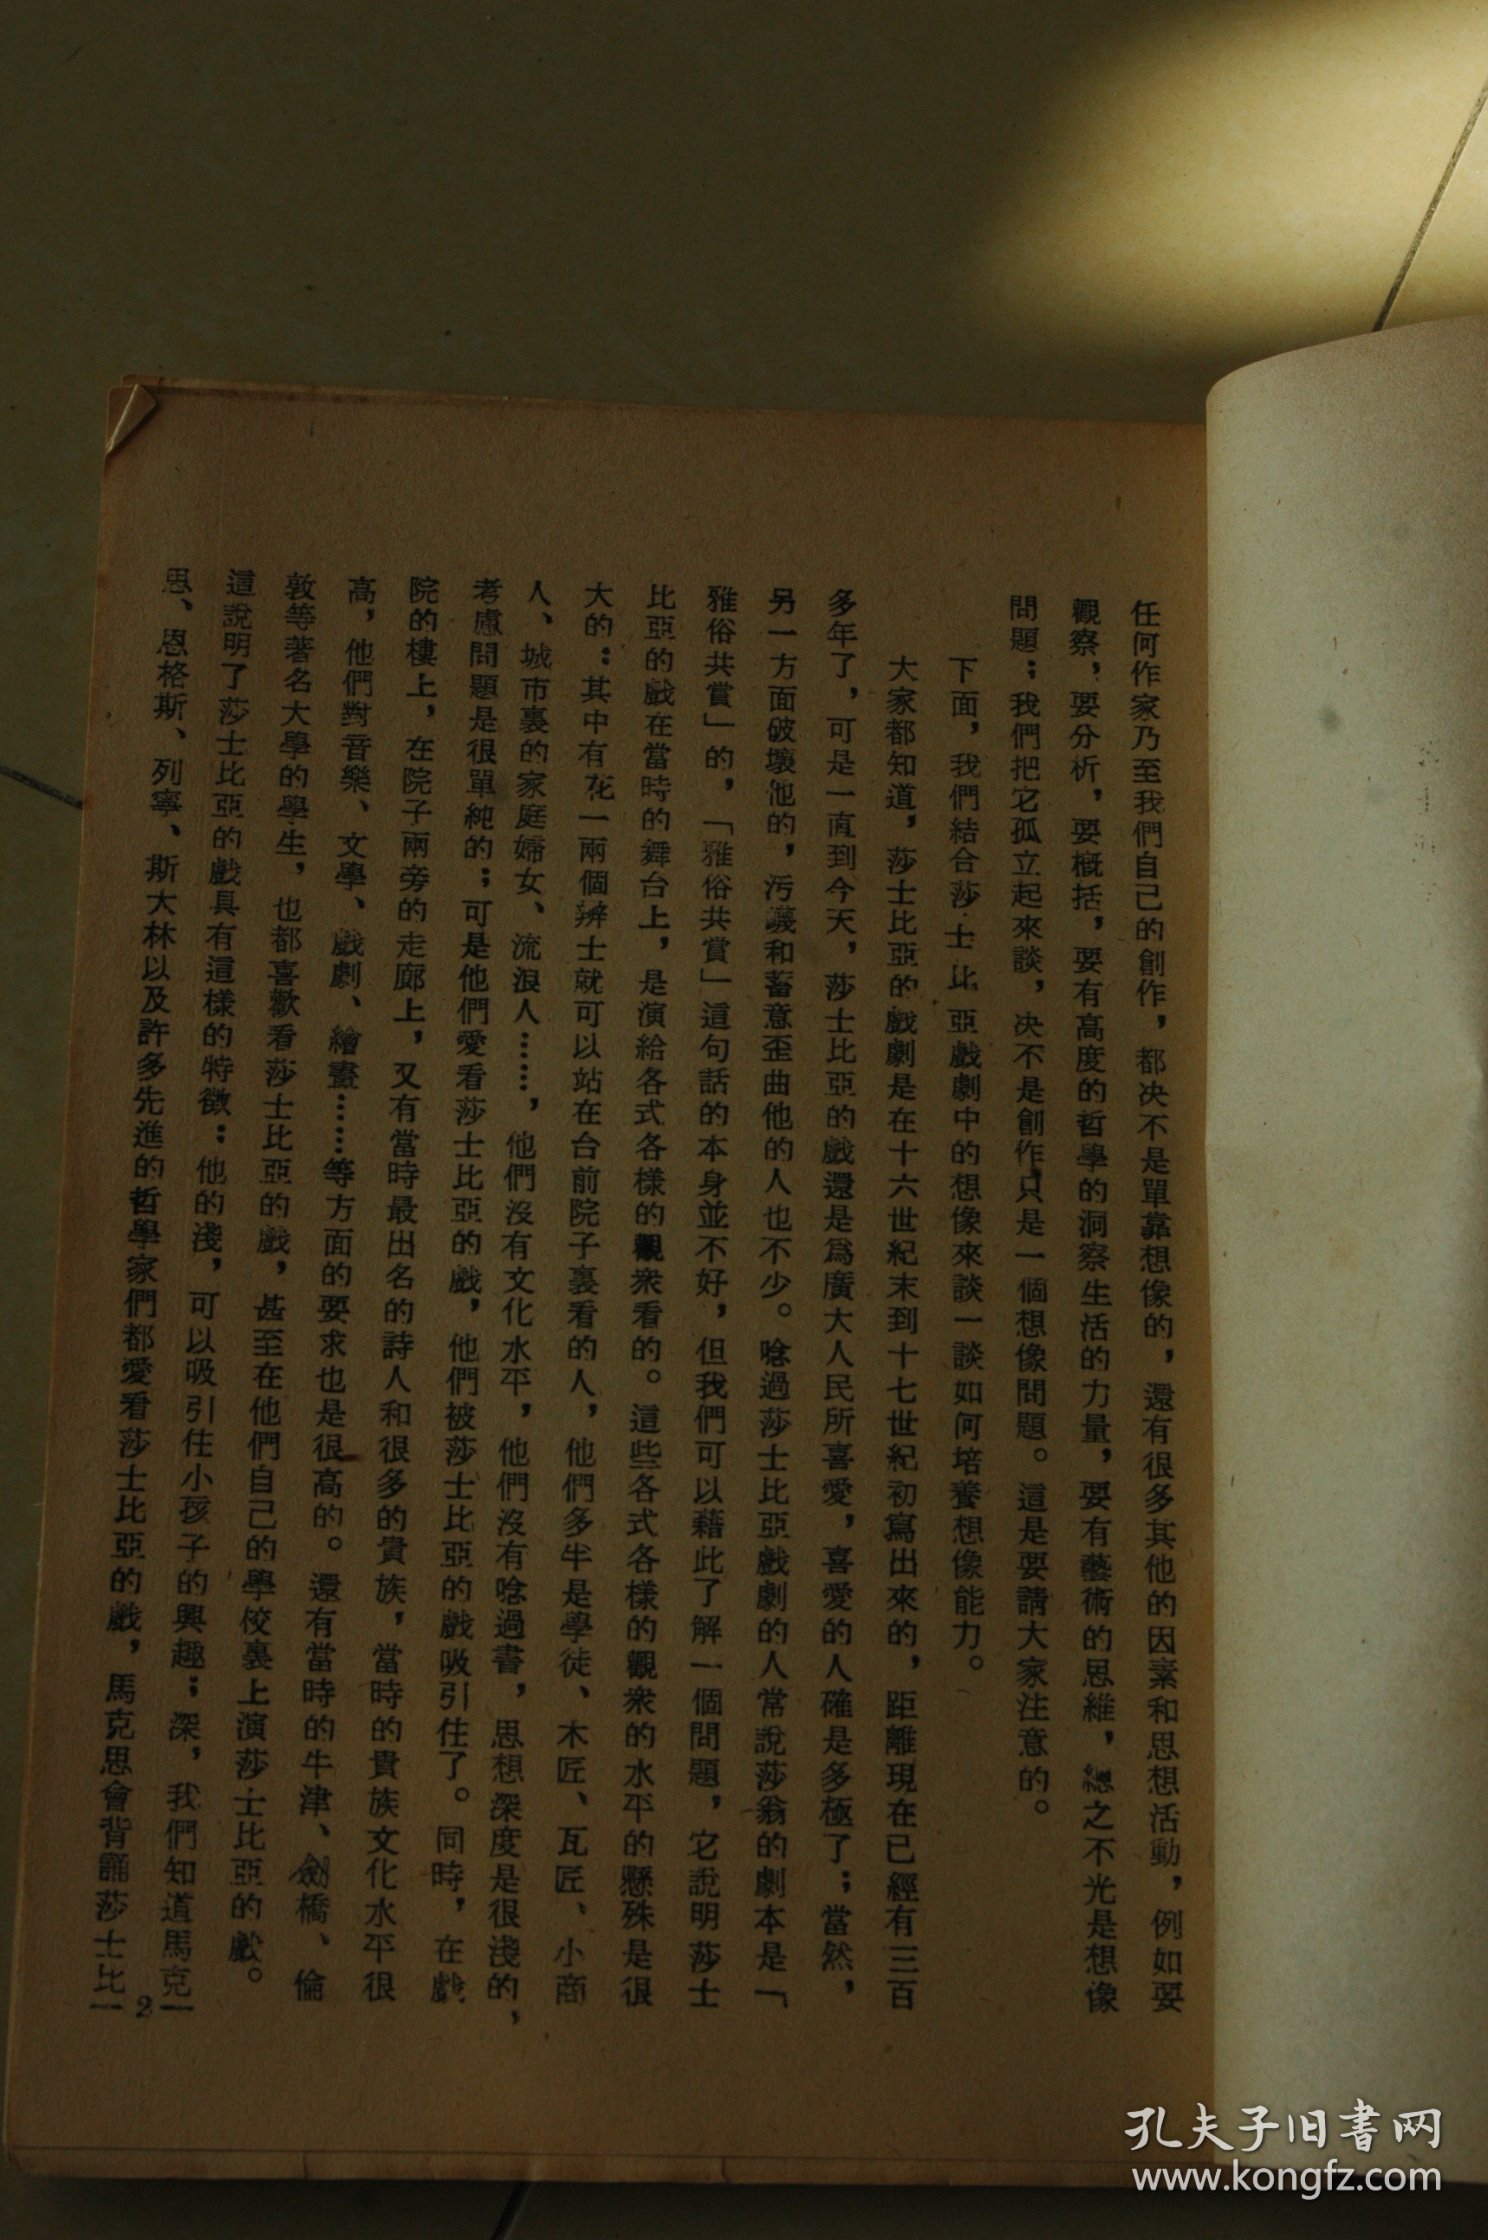 任何作家乃至我們自己的創作，都決不是單靠想像的，還有很多其他的因素和思想活動，例如要
觀察，要分析，要概括，要有高度的哲學的洞察生活的力量，要有藝術的思維，總之不光是想像
問題；我們把它孤立起來談，决不是創作只是一個想像問題。這是要請大家注意的。
下面，我們結合莎士比亞戲劇中的想像來談一談如何培養想像能力。
大家都知道，莎士比亞的戲劇是在十六世紀末到十七世紀初寫出來的，距離現在已經有三百
多年了，可是一直到今天，莎士比亞的戲還是爲廣大人民所喜愛，喜愛的人確是多極了；當然，
另一方面破壞他的，污衊和蓄意歪曲他的人也不少。唸過莎士比亞戲劇的人常說莎翁的劇本是「
雅俗共賞」的，「雅俗共賞」這句話的本身並不好，但我們可以藉此了解一個問題，它說明莎士
比亞的戲在當時的舞台上，是演給各式各樣的觀衆看的。這些各式各樣的觀衆的水平的懸殊是很
大的：其中有花一兩個辨士就可以站在台前院子裏看的人，他們多半是學徒、木匠、瓦匠、小商
人、城市裏的家庭婦女、流浪人……，他們沒有文化水平，他們沒有唸過書，思想深度是很淺的，
考慮問題是很單純的；可是他們愛看莎士比亞的戲，他們被莎士比亞的戲吸引住了。同時，在戲
院的樓上，在院子兩旁的走廊上，又有當時最出名的詩人和很多的貴族，當時的貴族文化水平很
高，他們對音樂、文學、戲劇、繪畫……等方面的要求也是很高的。還有當時的牛津、劍橋、倫
敦等著名大學的學生，也都喜歡看莎士比亞的戲，甚至在他們自己的學校裏上演莎士比亞的戲。
這說明了莎士比亞的戲具有這樣的特徵：他的淺，可以吸引住小孩子的興趣；深，我們知道馬克
思、恩格斯、列寧、斯大林以及許多先進的哲學家們都愛看莎士比亞的戲，馬克思會背誦莎士比
2
孔夫子旧書网
www.kongfz.com